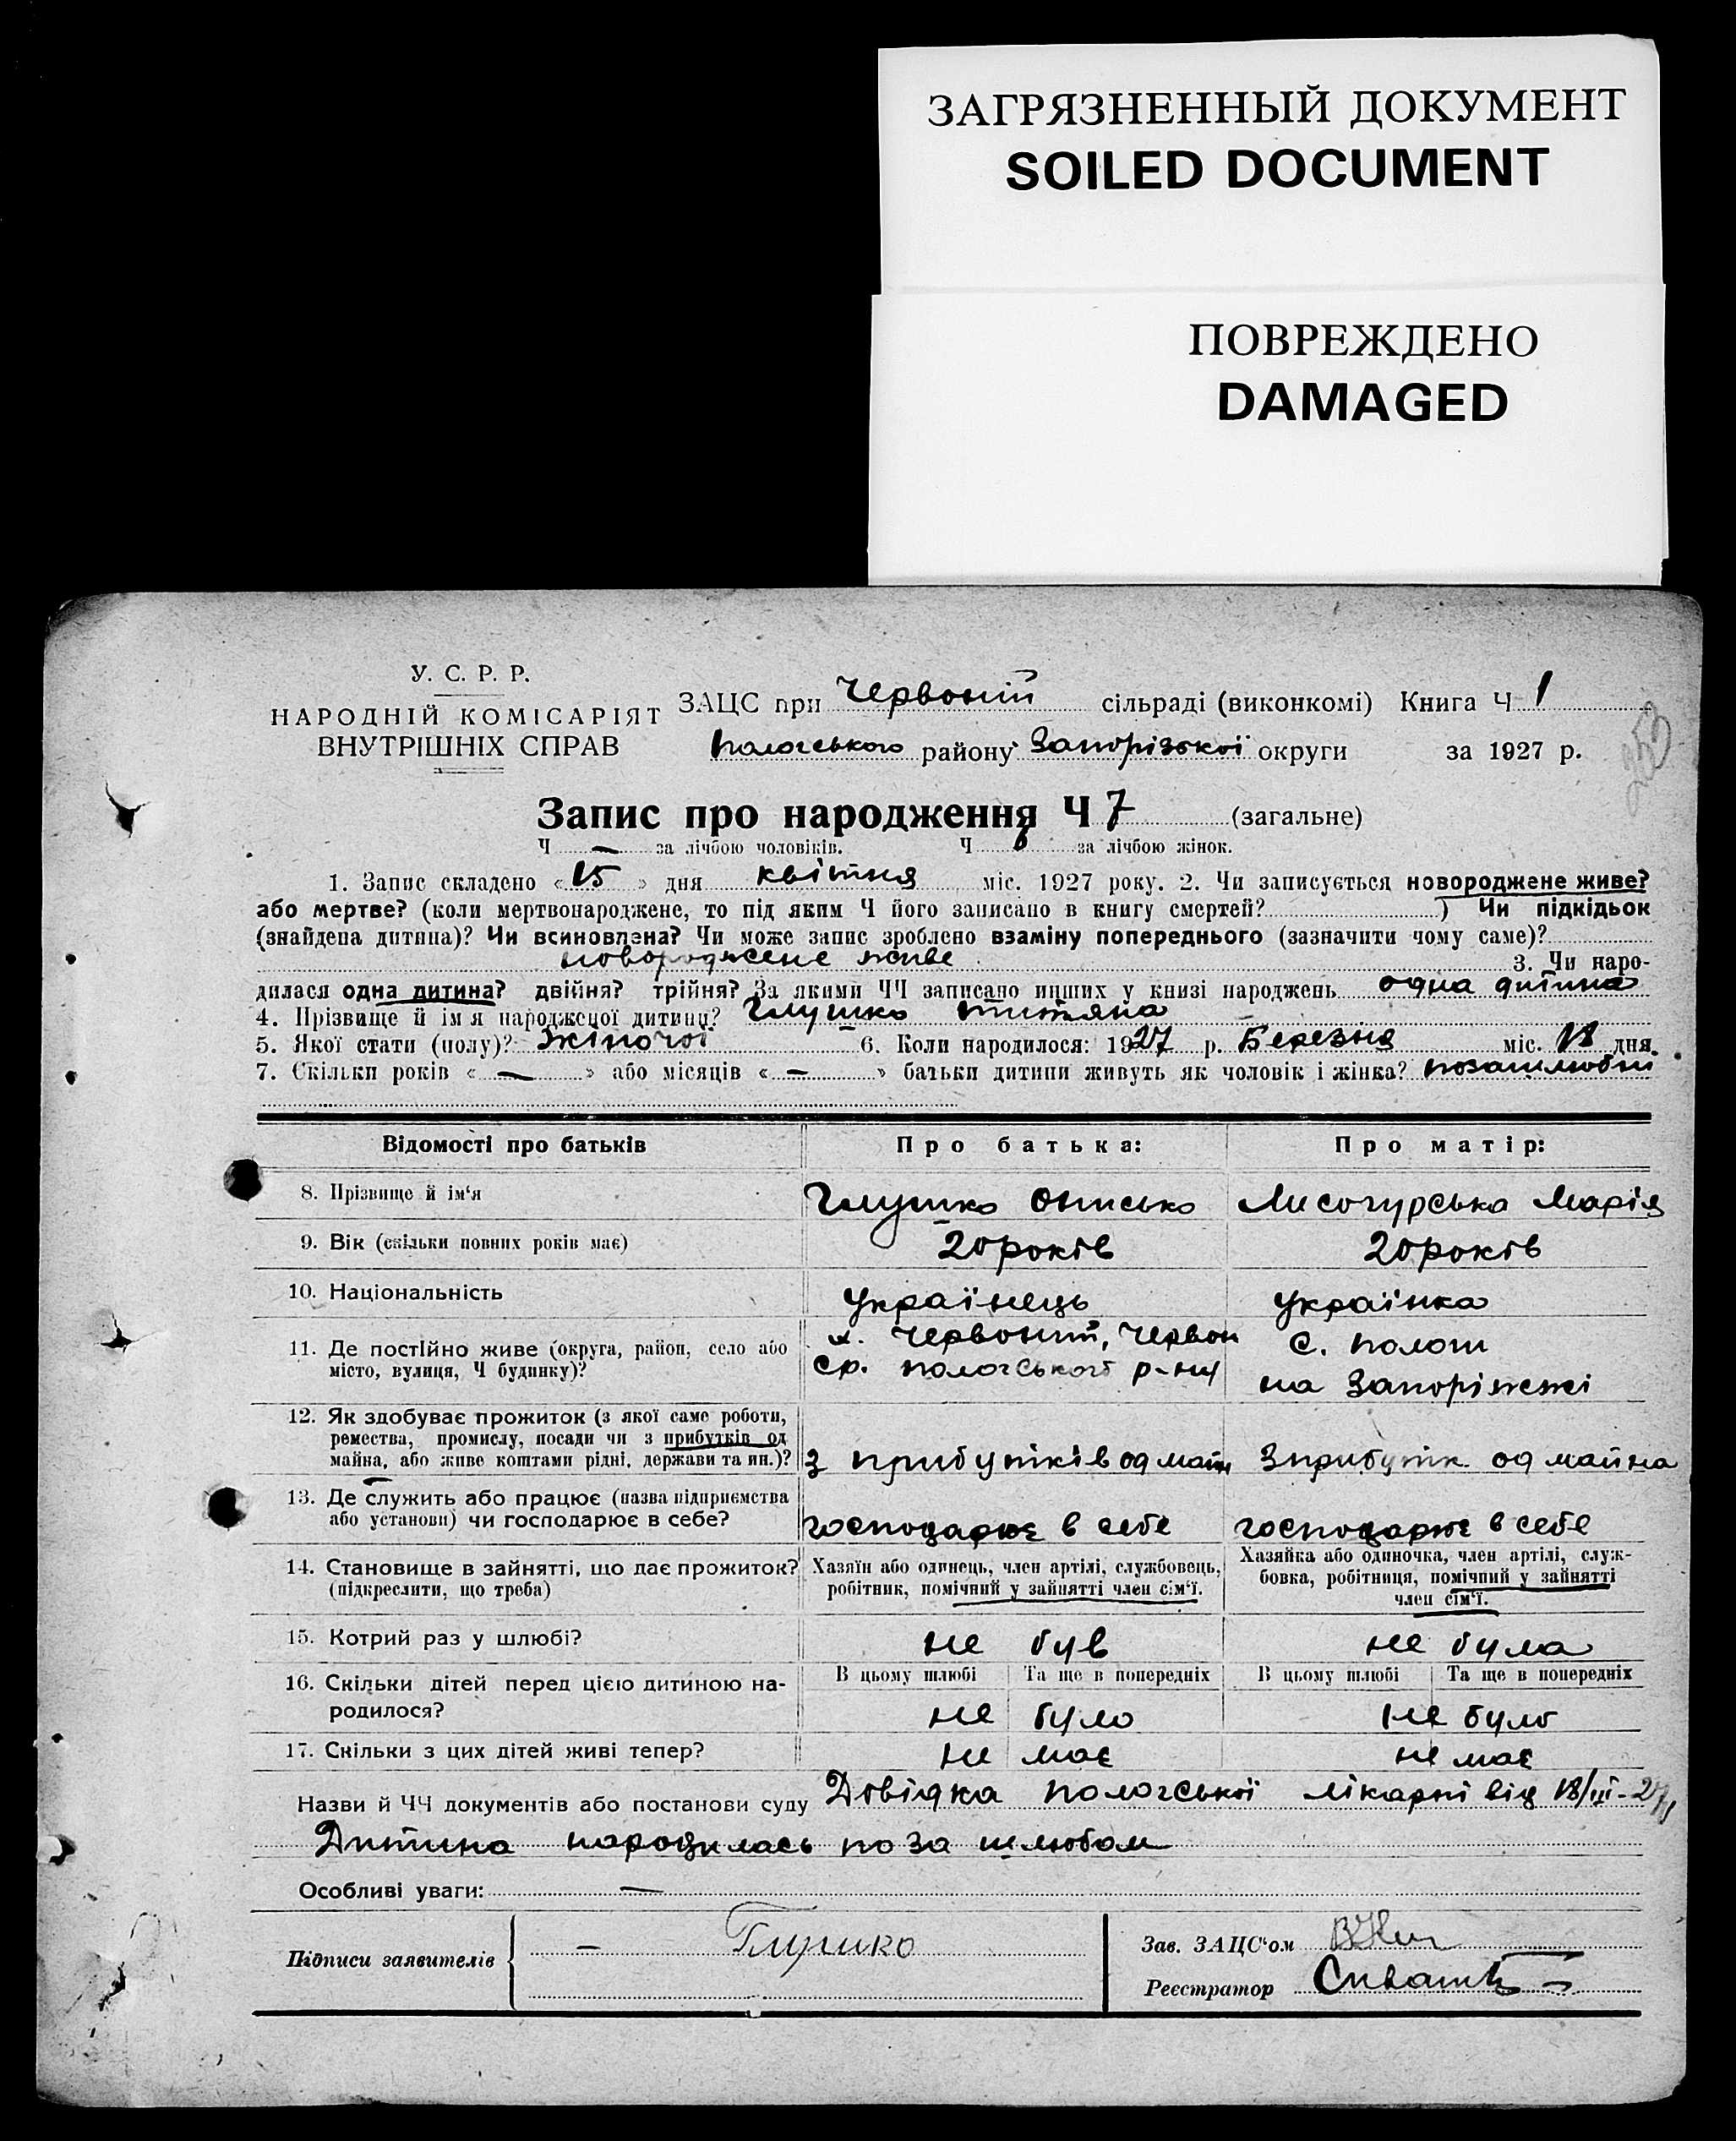 ЗАГРЯЗНЕННЫЙ ДОКУМЕНТ
SOILED DOCUMENT
ПОВРЕЖДЕНО
DAMAGED
У. С. Р. Р.
НАРОДНІЙ КОМІСАРІЯТ
ВНУТРІШНІХ СПРАВ
ЗАЦС при Червоній сільраді (виконкомі) Книга Ч 1
Пологського району Запорізької округи за 1927 р.
253
Запис про народження Ч 7 (загальне)
Ч — за лічбою чоловіків. Ч 6 за лічбою жінок.
1. Запис складено «15» дня квітня міс. 1927 року. 2. Чи записується новороджене живе?
або мертве? (коли мертвонароджене, то під яким Ч його записано в книгу смертей?) Чи підкідьок
(знайдена дитина)? Чи всиновлена? Чи може запис зроблено взаміну попереднього (зазначити чому саме)?
новороджене живе 3. Чи наро-
дилася одна дитина? двійня? трійня? За якими ЧЧ записано инших у книзі народжень одна дитина
4. Прізвище й імя народженої дитини? Глушко Титяна
5. Якої стати (полу)? жіночої 6. Коли народилося: 1927 р. Березня міс. 18 дня.
7. Скільки років «—» або місяців «—» батьки дитини живуть як чоловік і жінка? позашлюбні
Відомості про батьків Про батька: Про матір:
8. Прізвище й ім'я Глушко Онисько Лисогурська Марія
9. Вік (скільки повних років має) 20 років 20 років
10. Національність Українець Українка
11. Де постійно живе (округа, район, село або місто, вулиця, Ч будинку)?
х. Червоний, Червон
ср. Пологського р-ну
С. Пологи
на Запоріжжі
12. Як здобуває прожиток (з якої саме роботи,
ремества, промислу, посади чи з прибутків од
майна, або живе коштами рідні, держави та ин.)? З прибутків од майн З прибутк. од майна
13. Де служить або працює (назва підприємства
або установи) чи господарює в себе? господарює в себе господарює в себе
14. Становище в зайнятті, що дає прожиток?
(підкреслити, що треба)
Хазяїн або одинець, член артілі, службовець,
робітник, помічний у зайнятті член сім'ї.
Хазяйка або одиночка, член артілі, служ-
бовка, робітниця, помічний у зайнятті
член сім'ї.
15. Котрий раз у шлюбі? не був не була
16. Скільки дітей перед цією дитиною на-
родилося?
В цьому шлюбі Та ще в попередніх В цьому шлюбі Та ще в попередніх
не було не було
17. Скільки з цих дітей живі тепер? не має не має
Назви й ЧЧ документів або постанови суду Довідка Пологської лікарні від 18/III-27
Дитина народилась поза шлюбом
Особливі уваги: —
Підписи заявителів — Глушко
Зав. ЗАЦС'ом
Реєстратор